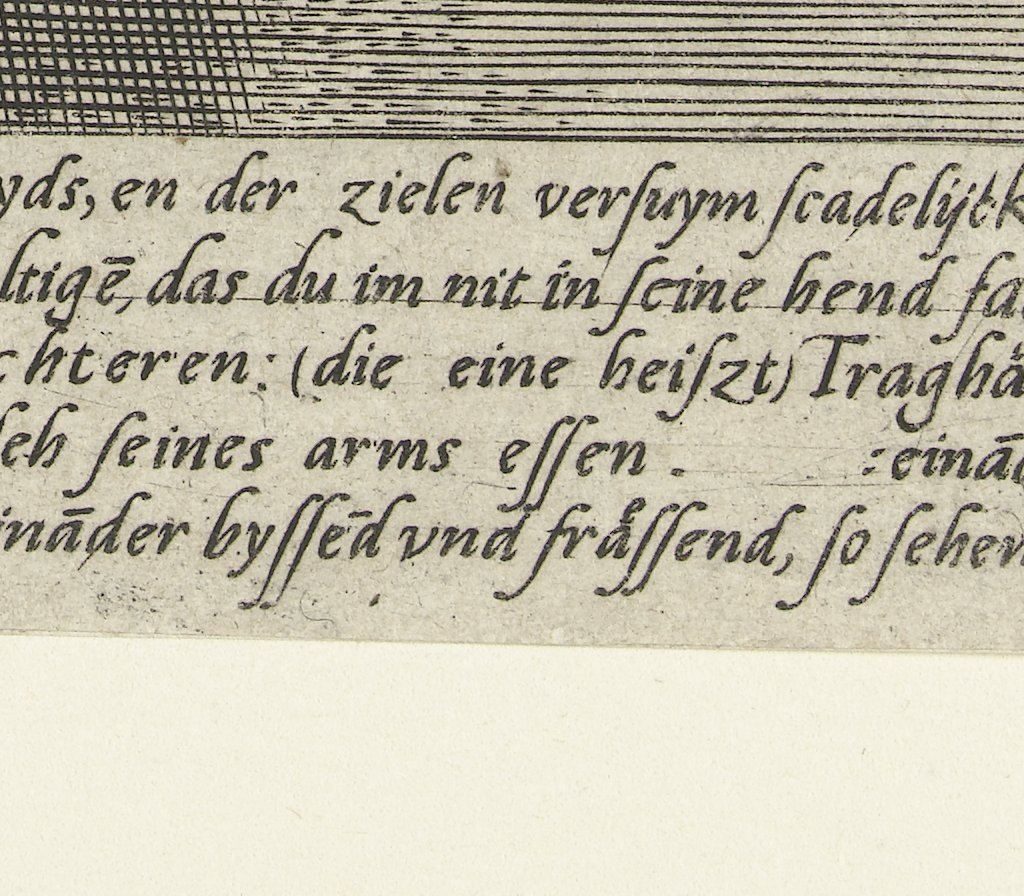 yds, en der zielen verſuym ſcadelijck
ltigē, das du im nit in ſeine hend fa
chteren: (die eine heiſzt) Traghå
leh ſeines arms eſſen . :einād
ināder byſſēd vnd fraͤſſend, ſo ſehen